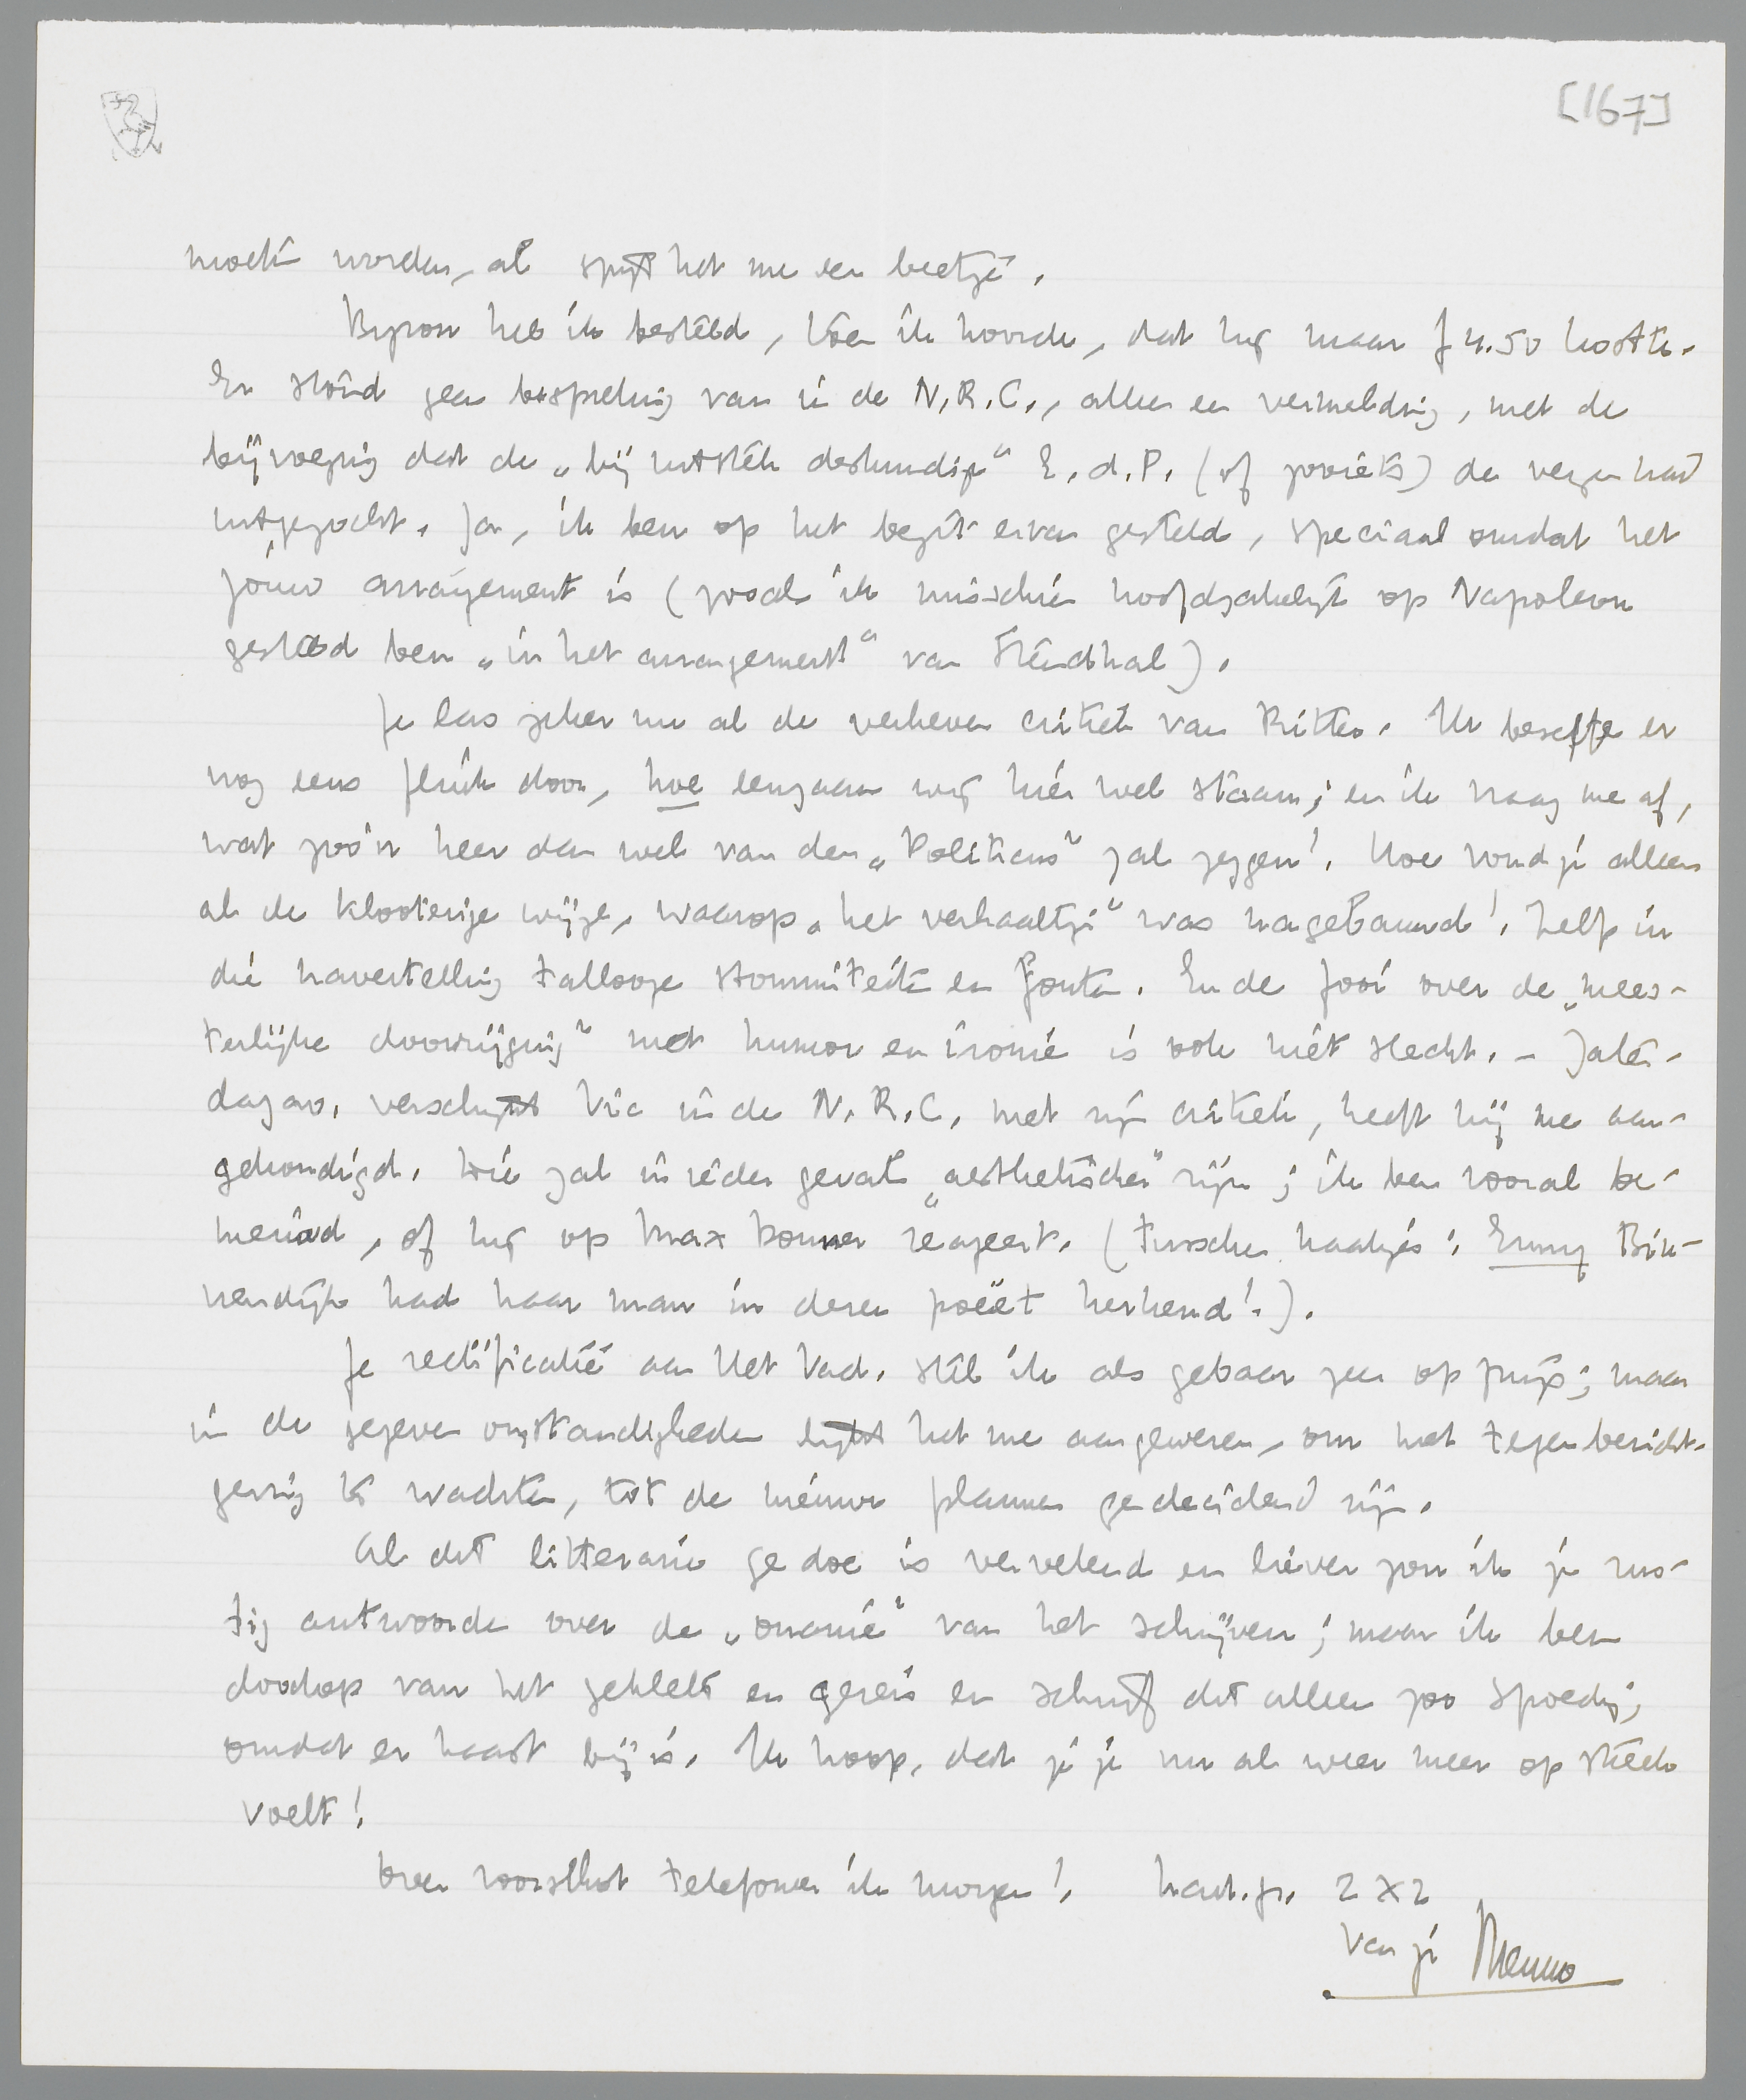 [167]
moeten worden, al spijt het me een beetje.
Byron heb ik besteld, toen ik hoorde, dat hij maar f 4.50 kostte.
Er stond geen bespreking van in de N.R.C., alleen een vermelding, met de
bijvoeging dat de „bij uitstek deskundige” E.d.P. (of zooiets) de verzen had
uitgezocht. Ja, ik ben op het bezit ervan gesteld, speciaal omdat het
jòuw arrangement is (zooals ik misschien hoofdzakelijk op Napoleon
gesteld ben „in het arrangement” van Stendhal).
Je las zeker nu al de verheven critiek van Ritter. Ik besefte er
nog eens flink door, hoe eenzaam wij hier wel staan; en ik vraag me af,
wat zoo'n heer dan wel van den „Politicus” zal zeggen! Hoe vond je alleen
al de klooterige wijze, waarop „het verhaaltje” was nagebauwd! Zelfs in
die navertelling tallooze stommiteiten en fouten. En de fooi over de „mees-
terlijke doorrijging” met humor en ironie is ook niet slecht. – Zater-
dagav. verschijnt Vic in de N.R.C. met zijn critiek, heeft hij me aan-
gekondigd. Die zal in ieder geval „aesthetischer” zijn; ik ben vooral be-
nieuwd, of hij op Max Donner reageert. (Tusschen haakjes: Emmy Bin-
nendijk had haar man in dezen poëet herkend!).
Je rectificatie aan Het Vad. stel ik als gebaar zeer op prijs; maar
in de gegeven omstandigheden lijkt het me aangewezen, om met tegenbericht-
geving te wachten, tot de nieuwe plannen gedecideerd zijn.
Al dit litteraire gedoe is vervelend en liever zou ik je rus-
tig antwoorden over de „onanie” van het schrijven; maar ik ben
doodop van het geklets en gereis en schrijf dit alleen zoo spoedig,
omdat er haast bij is. Ik hoop, dat je je nu al weer meer op streek
voelt!
Over voorschot telefoneer ik morgen! hart. gr. 2 x 2
van je Menno